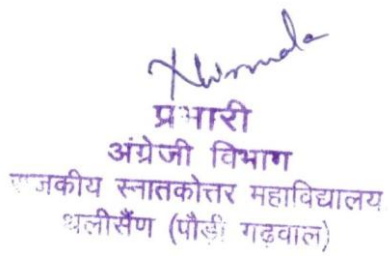 प्रभारी
अंग्रेजी विभाग
राजकीय स्नातकोत्तर महाविद्यालय
थलीसैंण (पौड़ी गढ़वाल)